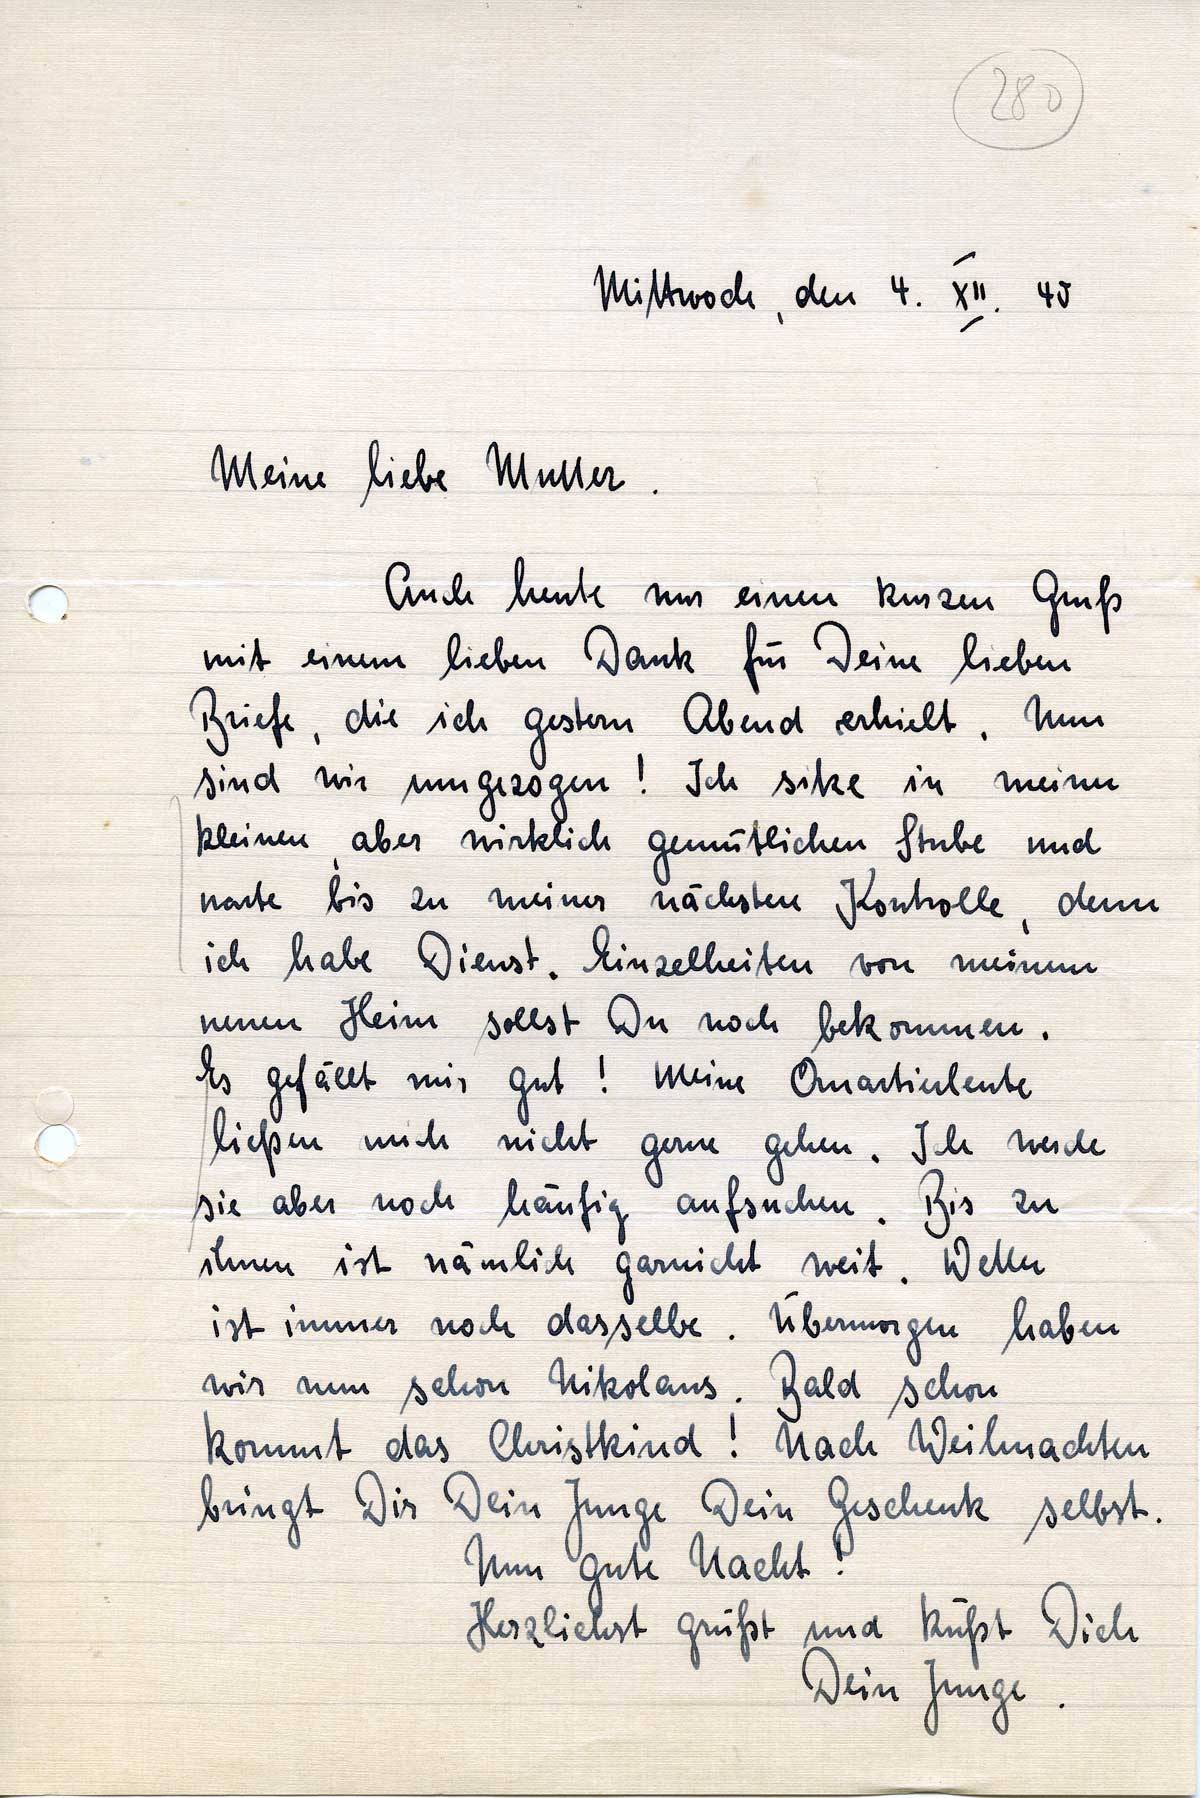 280
Mittwoch, den 4. XII. 40
Meine liebe Mutter.
Auch heute nur einen kurzen Gruß
mit einem lieben Dank für Deine lieben
Briefe, die ich gestern Abend erhielt. Nun
sind wir umgezogen! Ich sitze in meiner
kleinen, aber wirklich gemütlichen Stube und
warte bis zu meiner nächsten Kontrolle, denn
ich habe Dienst. Einzelheiten von meinem
neuen Heim sollst Du noch bekommen.
Es gefällt mir gut! Meine Quartierleute
ließen mich nicht gerne gehen. Ich werde
sie aber noch häufig aufsuchen. Bis zu
ihnen ist nämlich garnicht weit. Wetter
ist immer noch dasselbe. Übermorgen haben
wir nun schon Nikolaus. Bald schon
kommt das Christkind! Nach Weihnachten
bringt Dir Dein Junge Dein Geschenk selbst.
Nun gute Nacht!
Herzlichst grüßt und küßt Dich
Dein Junge.